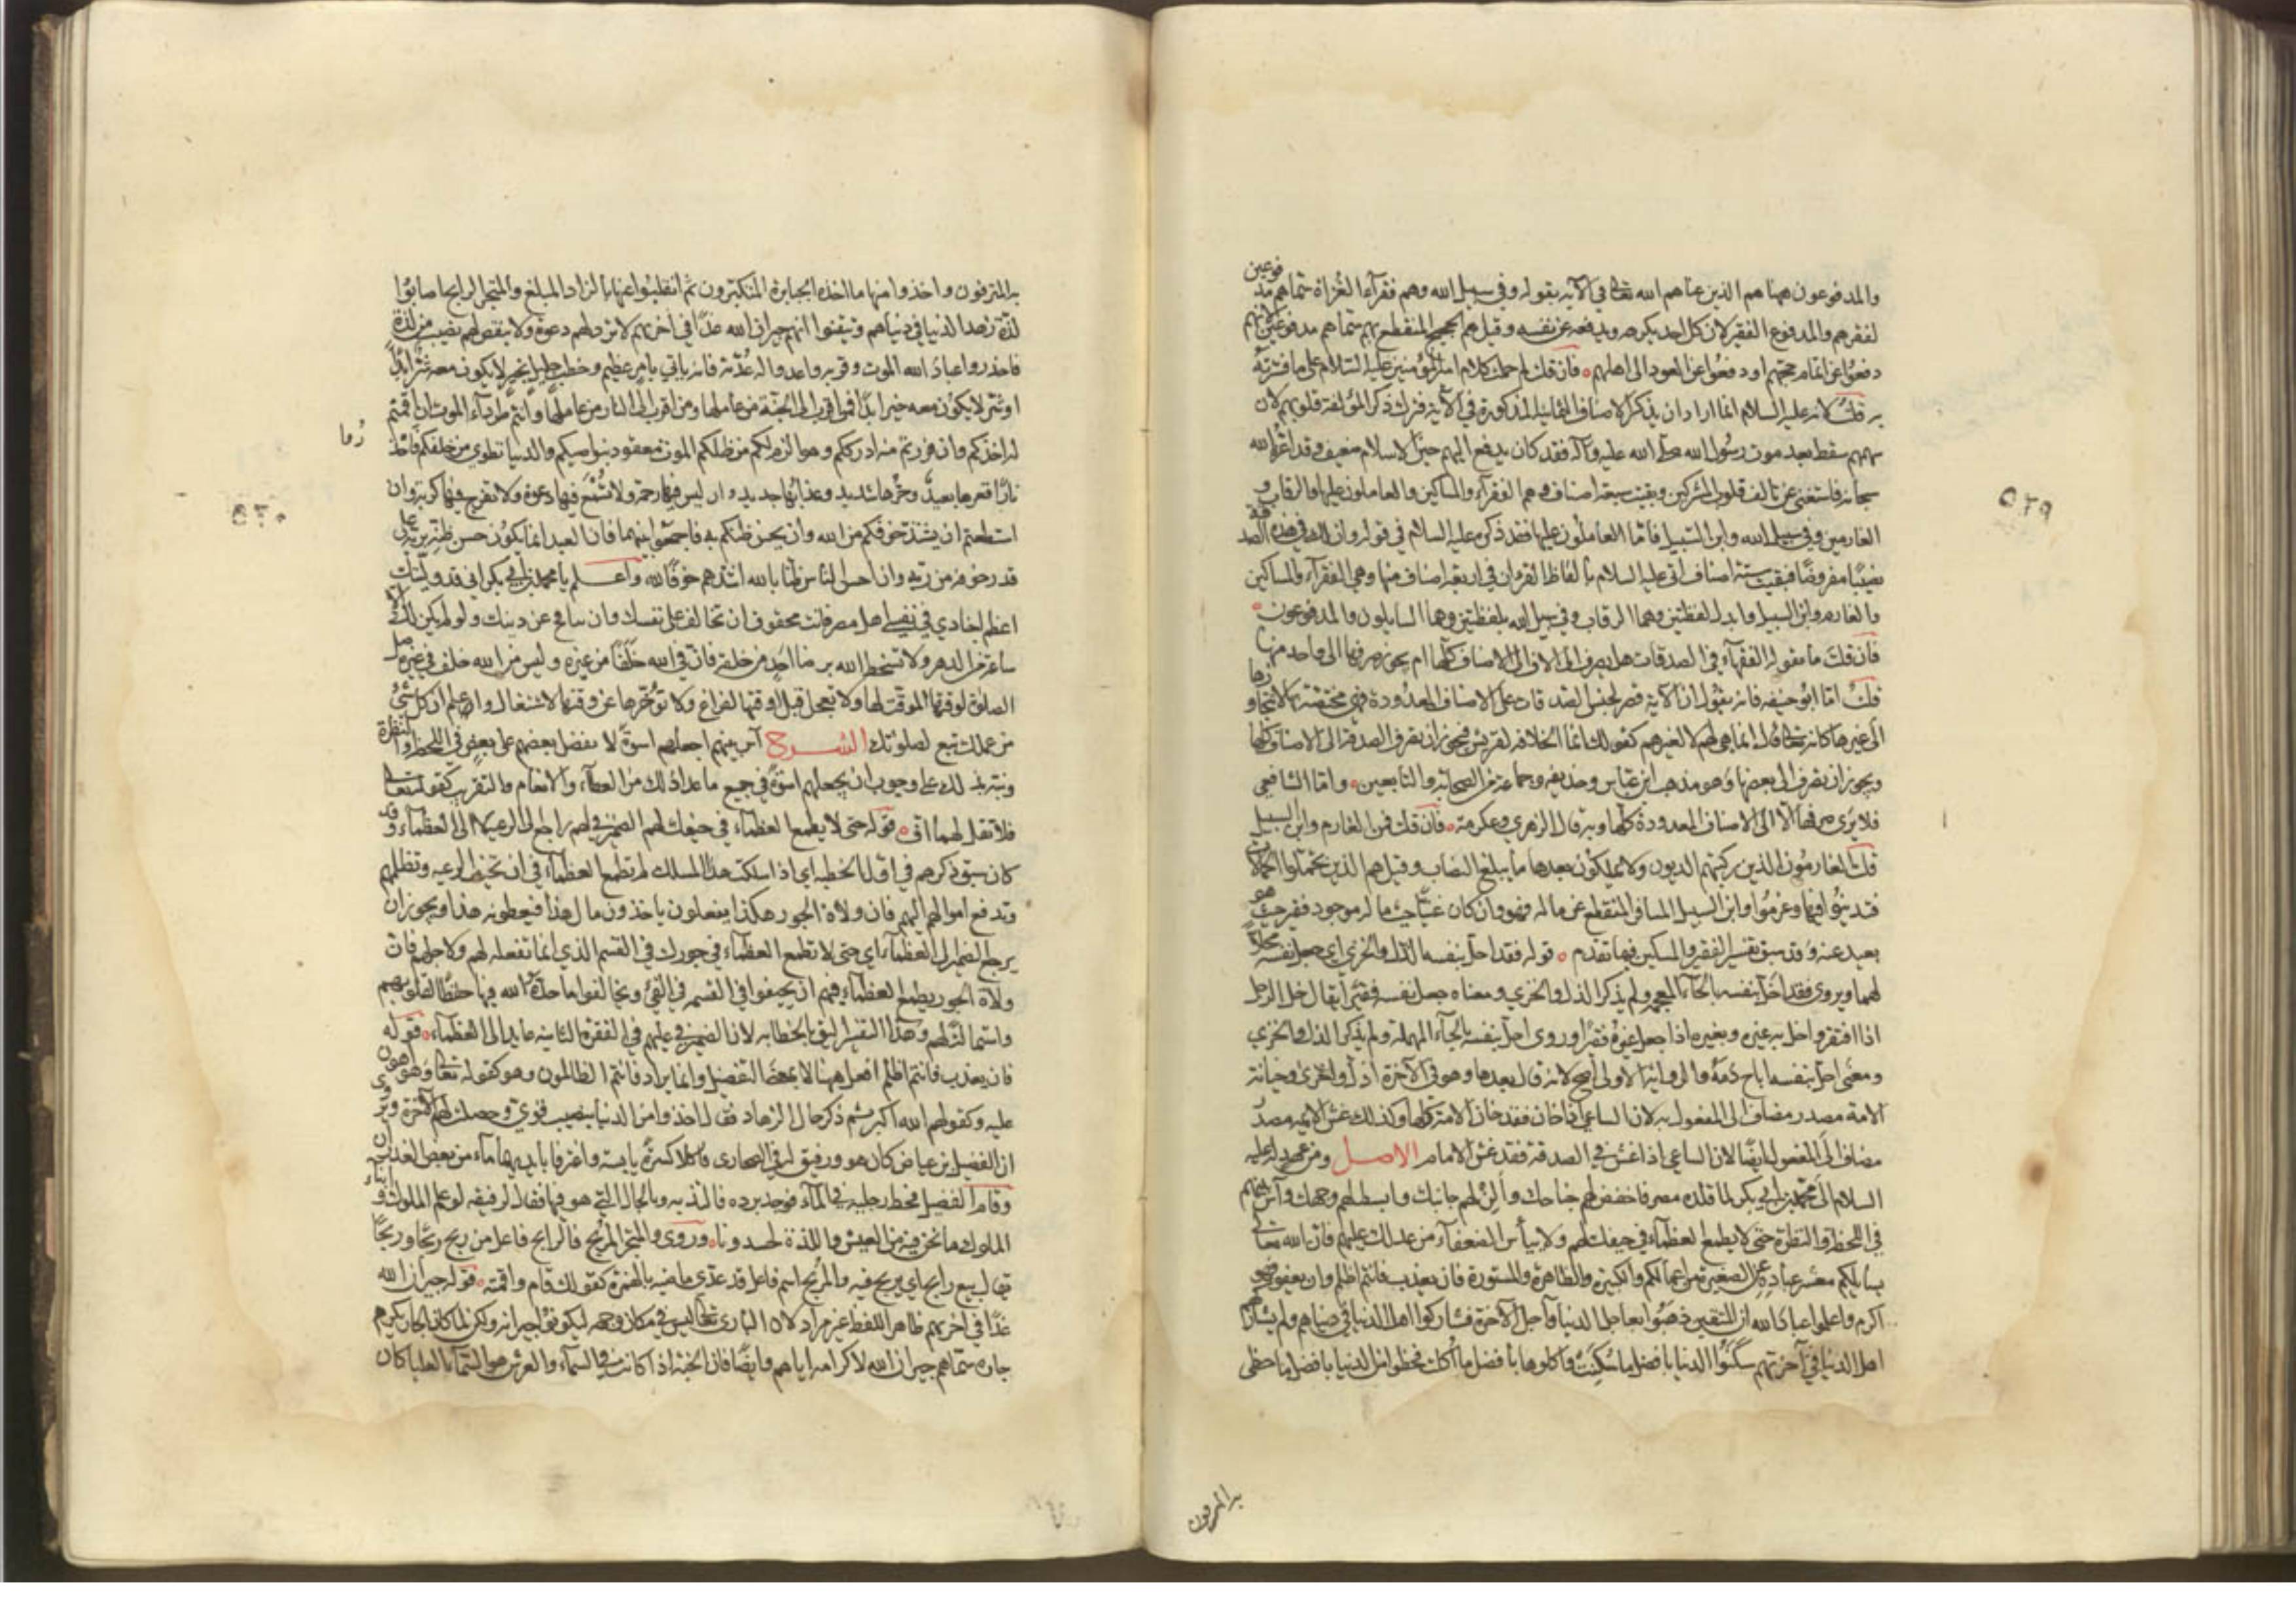 والمدفوعون ههنا هم الذين عناهم الله تعالى في الآية بقوله وفي سبيل الله وهم فقرآء الغزاة سماهم مدفوعين
لفقرهم والمدفوع الفقير لان كل احد يكرهه ويدفعه عن نفسه وقيل هم الحجيج المنقطع بهم سماهم مدفوعين لانهم
دفعوا عن اتمام حجتهم او دفعوا عن العود الى اهلهم فان قلت لم حملت كلام امير المؤمنين عليه السلام على ما فسرته
به قلت لانه عليه السلام انما اراد ان يذكر الاصناف المذكورة في الآية فترك ذكر المؤلفة قلوبهم لان
سهمهم سقط بعد موت رسول الله صلى الله عليه وآله فقد كان يدفع اليهم حين الاسلام ضعيف وقد اعزه الله
سبحانه فاستغنى عن تاليف قلوب المشركين وبقيت سبعة اصناف وهم الفقرآء والمساكين والعاملون عليها والرقاب و
الغارمين وفي سبيل الله وابن السبيل فاما العاملون عليها فقد ذكرهم عليه السلام في قوله وان لك في هذه الصدقة
نصيبا مفروضا فبقيت ستة اصناف اتى عليه السلام بالفاظ القرءان في اربعة اصناف منها وهي الفقرآء والمساكين
والغارم وابن السبيل وابدل لفظتين وهما الرقاب وفي سبيل الله بلفظتين وهما السايلون والمدفوعون
فان قلت ما يقوله الفقهآء في الصدقات هل يصرف الى الاصناف كلها ام يجوز صرفها الى واحد منها
قلت اما ابو حنيفه فانه يقول ان الآية قصر لجنس الصدقات على الاصناف المعدودة فهي مختصة بها لا تتجاوزها
الى غيرها كانه تعالى قال انما هي لهم لا لغيرهم كقولك انما الخلافة لقريش فيجوز ان تصرف الصدقة الى الاصناف كلها
ويجوز ان تصرف الى بعضها وهو مذهب ابن عباس وحذيفه وجماعة من الصحابة والتابعين واما الشافعي
فلا يرى صرفها الا الى الاصناف المعدودة كلها وبه قال الزهري وعكرمة فان قلت فمن الغارم وابن السبيل
قلت الغارمون الذين ركبتهم الديون ولا يملكون بعدها ما يبلغ النصاب وقيل هم الذين يحملوا الحمالات
فتدينوا فيها وغرموا وابن السبيل المسافر المنقطع عن ماله فهو وان كان غنيا حيث ماله موجود فقير حيث هو
بعيد عنه وقد سبق تفسير الفقير والمسكين فيما تقدم قوله فقد احل بنفسه الذل والخزي اي جعل نفسه محلا
لهما ويروى فقد اخل بنفسه بالخآء المعجمه ولم يذكر الذل والخزي ومعناه جعل نفسه فقيرا يقال خل الرجل
اذا افتقر واخل به غيره وبغيره اذا جعل غيره فقيرا وروى احل بنفسه بالحآء المهملة ولم يذكر الذل والخزي
ومعنى احل بنفسه اباح دمه والرواية الاولى اصح لانه قال بعدها وهو في الآخرة اذل واخزى وخيانة
الامة مصدر مضاف الى المفعول به لان الساعي اذا خان فقد خان الامة كلها وكذلك غش الايمه مصدر
مضاف الى المفعول ايضا لان الساعي اذا غش في الصدقة فقد غش الامام الاصل ومن عهد له عليه
السلام الى محمد بن ابي بكر لما قلده مصر فاخفض لهم جناحك والن لهم جانبك وابسط لهم وجهك وآس بينهم
في اللحظة والنظرة حتى لا يطمع العظمآء في حيفك لهم ولا ييأس الضعفآء من عدلك عليهم فان الله تعالى
يسايلكم معشر عباده عن الصغيرة من اعمالكم والكبيرة والظاهرة والمستورة فان يعذب فانتم اظلم وان يعف فهو
اكرم واعلموا عباد الله ان المتقين ذهبوا بعاجل الدنيا وآجل الآخرة فشاركوا اهل الدنيا في دنياهم ولم يشاركهم
اهل الدنيا في آخرتهم سكنوا الدنيا بافضل ما سكنت واكلوها بافضل ما اكلت فحظوا من الدنيا بافضل ما حظى
به المترفون
٥٢٩
به المترفون واخذوا منها ما اخذه الجبابرة المتكبرون ثم انقلبوا عنها بالزاد المبلغ والمتجر الرابح اصابوا
لذة زهد الدنيا في دنياهم وتيقنوا انهم جيران الله غدا في آخرتهم لا ترد لهم دعوة ولا ينقص لهم نصيب من لذة
فاحذروا عباد الله الموت وقربه واعدوا له عدته فانه ياتي بامر عظيم وخطب جليل بخير لا يكون معه شر ابدا
او شر لا يكون معه خير ابدا فمن اقرب الى الجنة من عاملها ومن اقرب الى النار من عاملها وانتم طردآء الموت ان اقمتم
له اخذكم وان فررتم منه ادرككم وهو الزم لكم من ظلكم الموت معقود بنواصيكم والدنيا تطوى من خلفكم فاحذروا
نارا قعرها بعيد وحرها شديد وعذابها جديد دار ليس فيها رحمة ولا تسمع فيها دعوة ولا تفرج فيها كربة وان
استطعتم ان يشتد خوفكم من الله وان يحسن ظنكم به فاجمعوا بينهما فان العبد انما يكون حسن ظنه بربه على
قدر خوفه من ربه وان احسن الناس ظنا بالله اشدهم خوفا لله واعلم يا محمد بن ابي بكر اني قد وليتك
اعظم اجنادي في نفسي اهل مصر فانت محقوق ان تخالف على نفسك وان تنافح عن دينك ولو لم يكن لك الا
ساعة من الدهر ولا تسخط الله برضا احد من خلقه فان في الله خلفا من غيره وليس من الله خلف في غيره صل
الصلوة لوقتها الموقت لها ولا تعجل قبل وقتها لفراغ ولا تؤخرها عن وقتها لاشتغال واعلم ان كل شئ
من عملك تبع لصلوتك الشرح آس بينهم اجعلهم اسوة لا تفضل بعضهم على بعض في اللحظة والنظرة
ونبه بذلك على وجوب ان يجعلهم اسوة في جميع ما عدا ذلك من العطآء والانعام والتقريب كقوله تعالى
فلا تقل لهما اف قوله حتى لا يطمع العظمآء في حيفك لهم الضمير في لهم راجع الى الرعية لا الى العظمآء وقد
كان سبق ذكرهم في اول الخطبه اي اذا سلكت هذا المسلك لم يطمع العظمآء في ان تحيف الرعيه وتظلمهم
وتدفع اموالهم اليهم فان ولاة الجور هكذا يفعلون ياخذون مال هذا فيعطونه هذا ويجوز ان
يرجع الضمير الى العظمآء اي حتى لا تطمع العظمآء في جورك في القسم الذي انما تفعله لهم ولاجلهم فان
ولاة الجور يطمع العظمآء فيهم ان يحيفوا في القسمة في الفئ ويخالفوا ما حده الله فيها حفظا لقلوبهم
واستمالة لهم وهذا التفسير اليق بالخطابه لان الضمير في عليهم في الفقرة الثانيه عايد الى الضعفآء قوله
فان يعذب فانتم اظلم افعل ههنا لا بمعنى التفضيل وانما يراد فانتم الظالمون وهو كقوله تعالى وهو اهون
عليه وكقولهم الله اكبر ثم ذكر حال الزهاد فقال اخذوا من الدنيا بنصيب قوي وحصلت لهم الآخرة ويروى
ان الفضيل بن عياض كان هو ورفيق له في الصحارى فاكلا كسرة يابسة واغترفا بايديهما مآء من بعض الغدران
وقام الفضيل فحط رجليه في المآء فوجد برده فالتذ به وبالحال التي هو فيها فقال لرفيقه لو علم الملوك وابناء
الملوك ما نحن فيه من العيش واللذة لحسدونا وروى والمتجر المربح فالرابح فاعل من ربح ربحا وربحا
يقال بيع رابح اي يربح فيه والمربح اسم فاعل قد عدي ماضيه بالهمزة كقولك قام واقمته قوله جيران الله
غدا في آخرتهم ظاهر اللفظ غير مراد لان الباري تعالى ليس في مكان وجهة ليكونوا جيرانه ولكن لما كان الجار يكرم
جاره سماهم جيران الله لاكرامه اياهم وايضا فان الجنة اذا كانت في السمآء والعرش هو السمآء العليا كان
٥٣٠